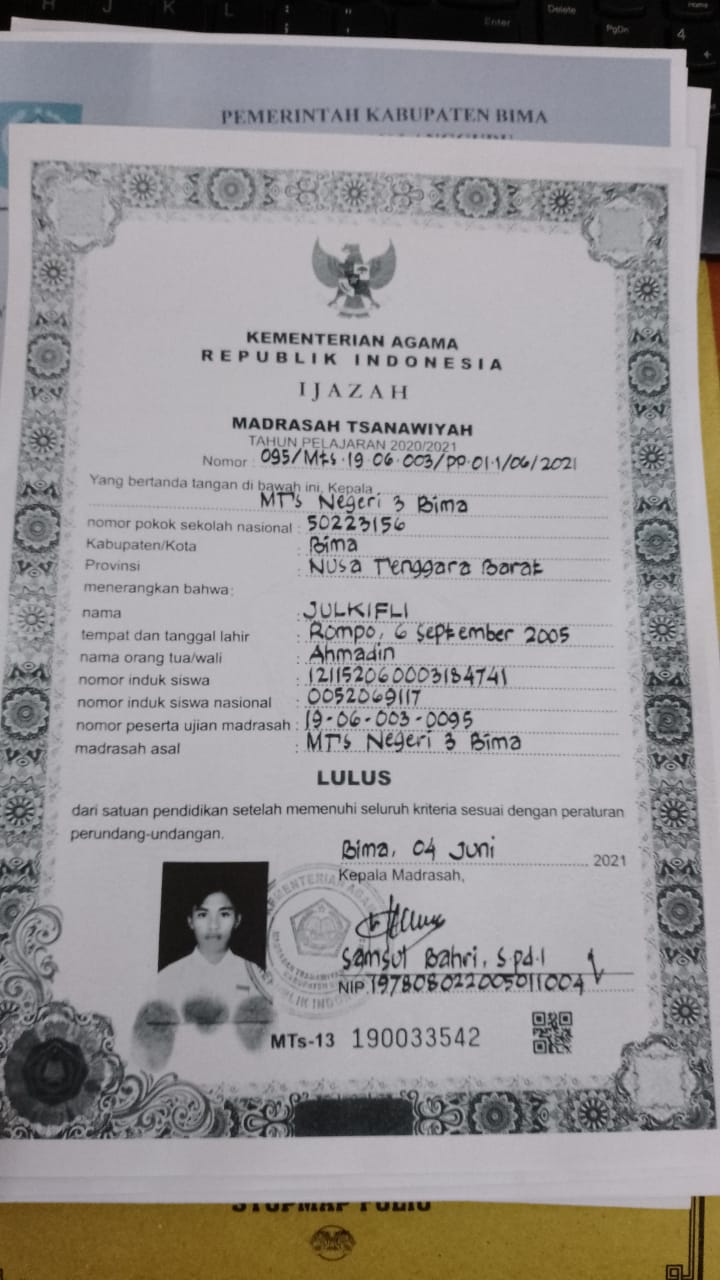 H J K L
Enter
Delete
Home
PgDn
4
PEMERINTAH KABUPATEN BIMA
KEMENTERIAN AGAMA
REPUBLIK INDONESIA
IJAZAH
MADRASAH TSANAWIYAH
TAHUN PELAJARAN 2020/2021
Nomor : 095/MTs.19.06.003/PP.01.1/06/2021
Yang bertanda tangan di bawah ini, Kepala
MTs Negeri 3 Bima
nomor pokok sekolah nasional : 50223156
Kabupaten/Kota : Bima
Provinsi : Nusa Tenggara Barat
menerangkan bahwa:
nama : JULKIFLI
tempat dan tanggal lahir : Rompo, 6 September 2005
nama orang tua/wali : Ahmadin
nomor induk siswa : 121152060003184741
nomor induk siswa nasional : 0052069117
nomor peserta ujian madrasah : 19-06-003-0095
madrasah asal : MTs Negeri 3 Bima
LULUS
dari satuan pendidikan setelah memenuhi seluruh kriteria sesuai dengan peraturan
perundang-undangan.
Bima, 04 Juni 2021
Kepala Madrasah,
KEMENTERIAN AGAMA
Samsul Bahri, S.Pd.I
NIP. 197808022005011004
MTs-13 190033542
STOPMAP FOLIO